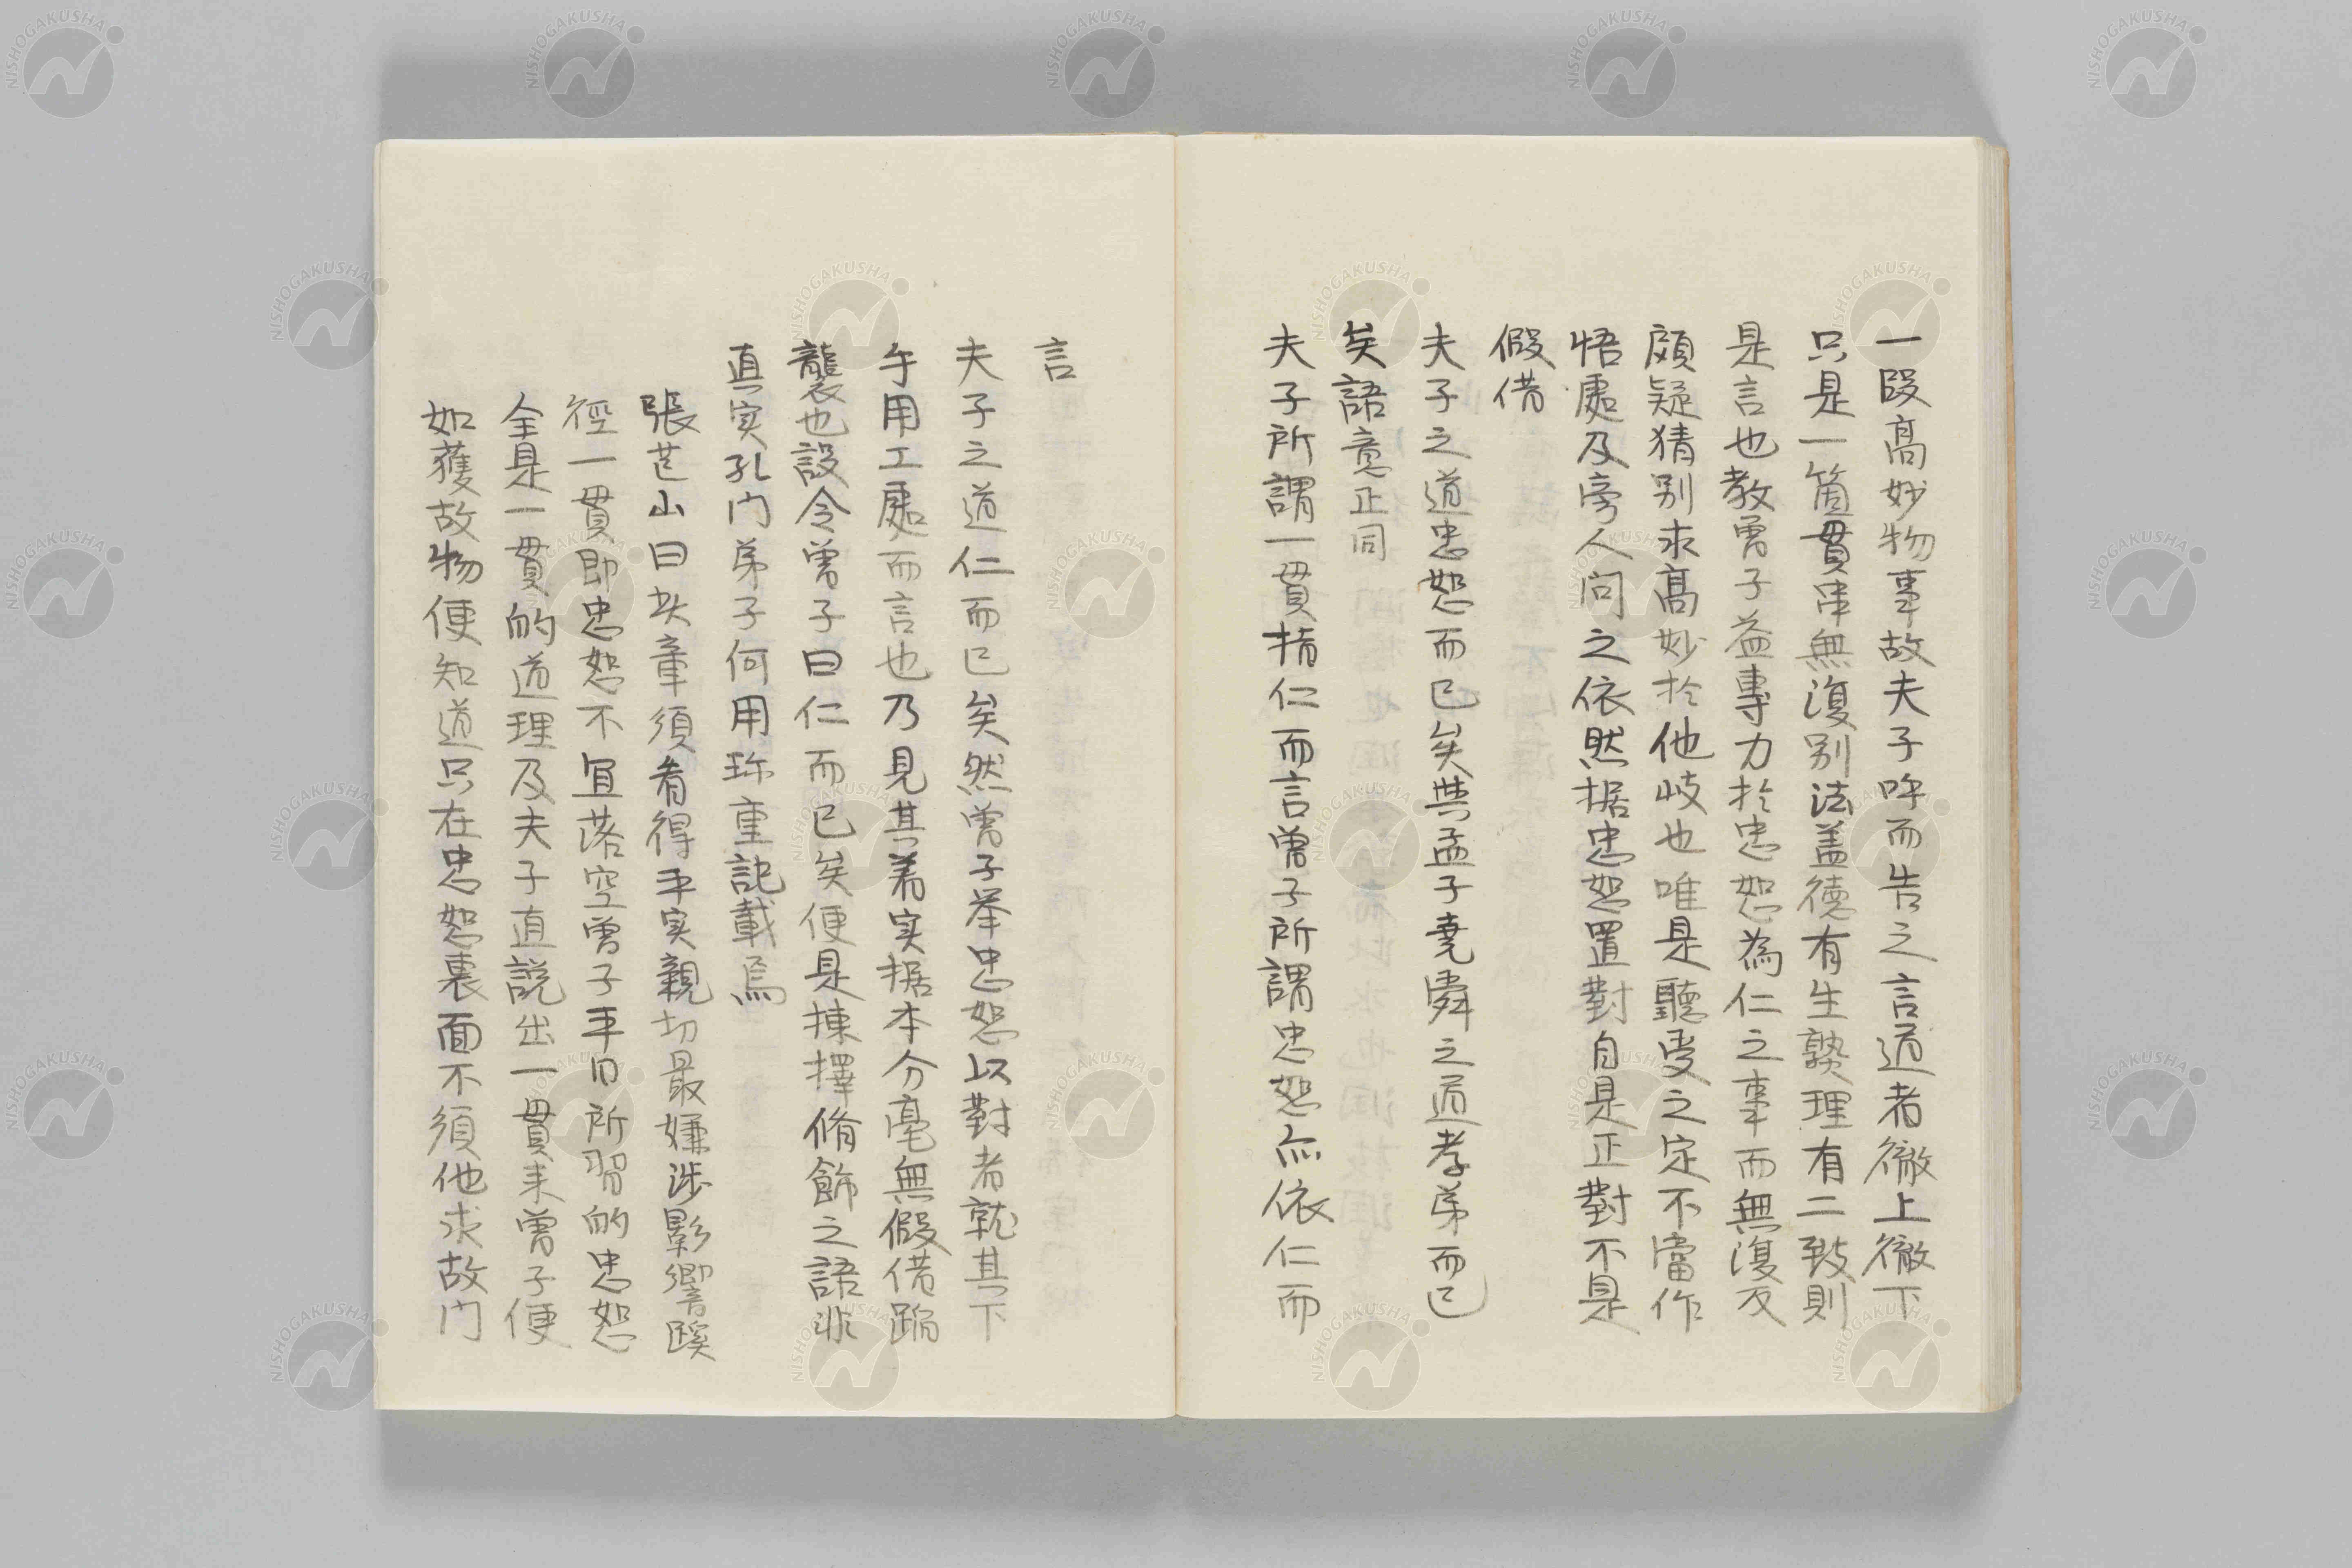 一段高妙物事故夫子呼而告之言道者徹上徹下
只是一箇貫串無復別法盖徳有生熟理有二致則
是言也教曽子益専力於忠恕為仁之事而無復反
顧疑猜别求高妙於他岐也唯是聽受之定不當作
悟處及旁人问之依然据忠恕置對自是正對不是
假借
夫子之道忠恕而已矣與孟子堯舜之道孝弟而已
矣語意正同
夫子所謂一貫指仁而言曽子所謂忠恕亦依仁而
言
夫子之道仁而已矣然曽子举忠恕以對者就其下
手用工處而言也乃見其着实据本分毫無假借蹈
襲也設令曽子曰仁而已矣便是揀擇脩飾之語非
真实孔门弟子何用珎重記載焉
張芑山曰此章須看得平实親切最嫌涉影響蹊
徑一貫即忠恕不冝落空曽子平日所習的忠恕
全是一貫的道理及夫子直説出一貫来曽子便
如獲故物便知道只在忠恕裏面不須他求故门
NISHOGAKUSHA